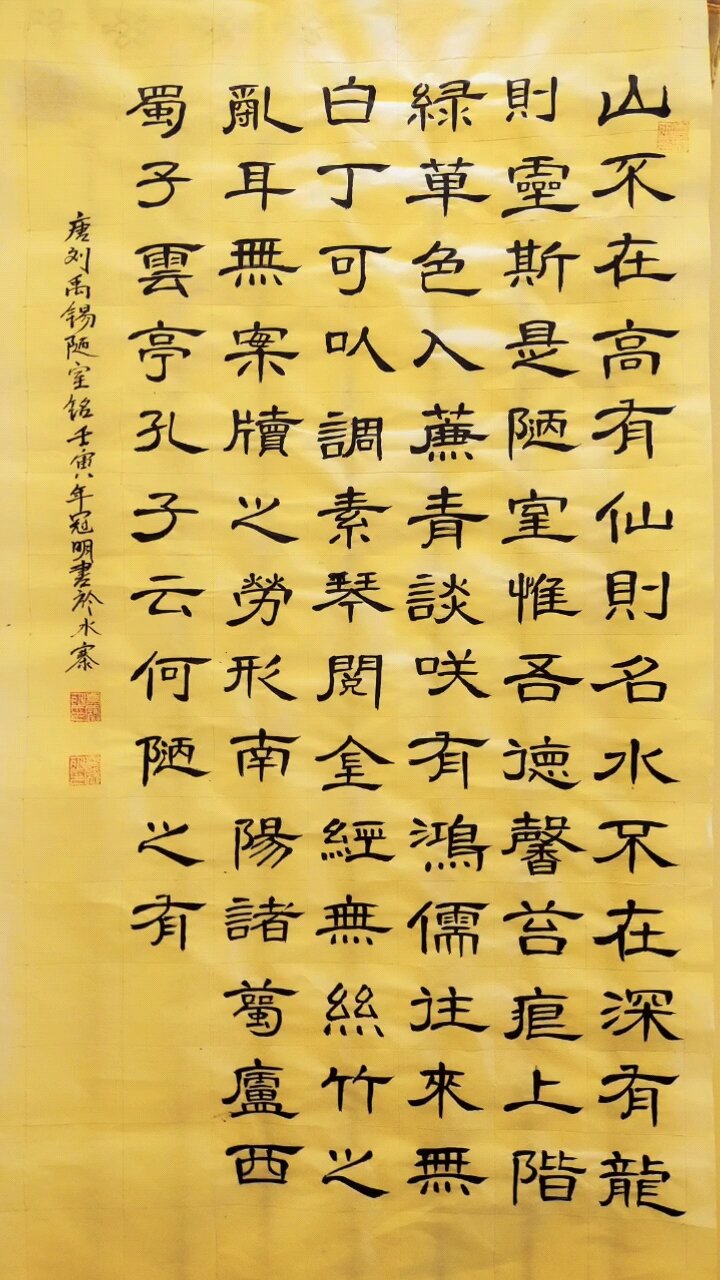 山不在高有仙則名水不在深有龍
則靈斯是陋室惟吾德馨苔痕上階
緑草色入薕青談咲有鴻儒往來無
白丁可以調素琴閱金經無絲竹之
亂耳無案牘之勞形南陽諸葛廬西
蜀子雲亭孔子云何陋之有
唐刘禹锡陋室铭壬寅八年冠明書於水寨